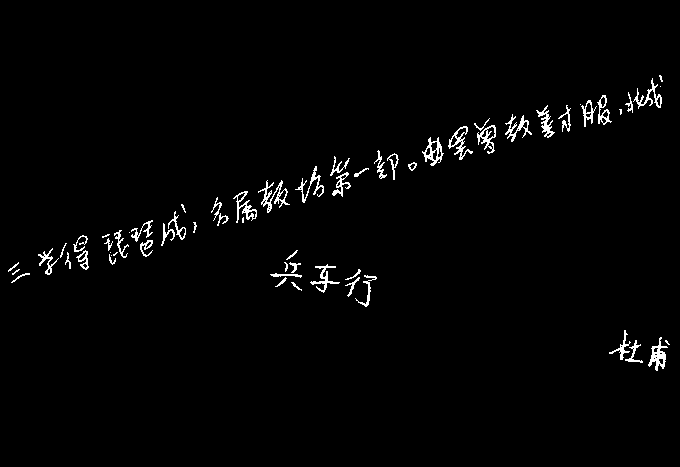 三学得琵琶成，名属教坊第一部。曲罢曾教善才服，妆成
兵车行
杜甫